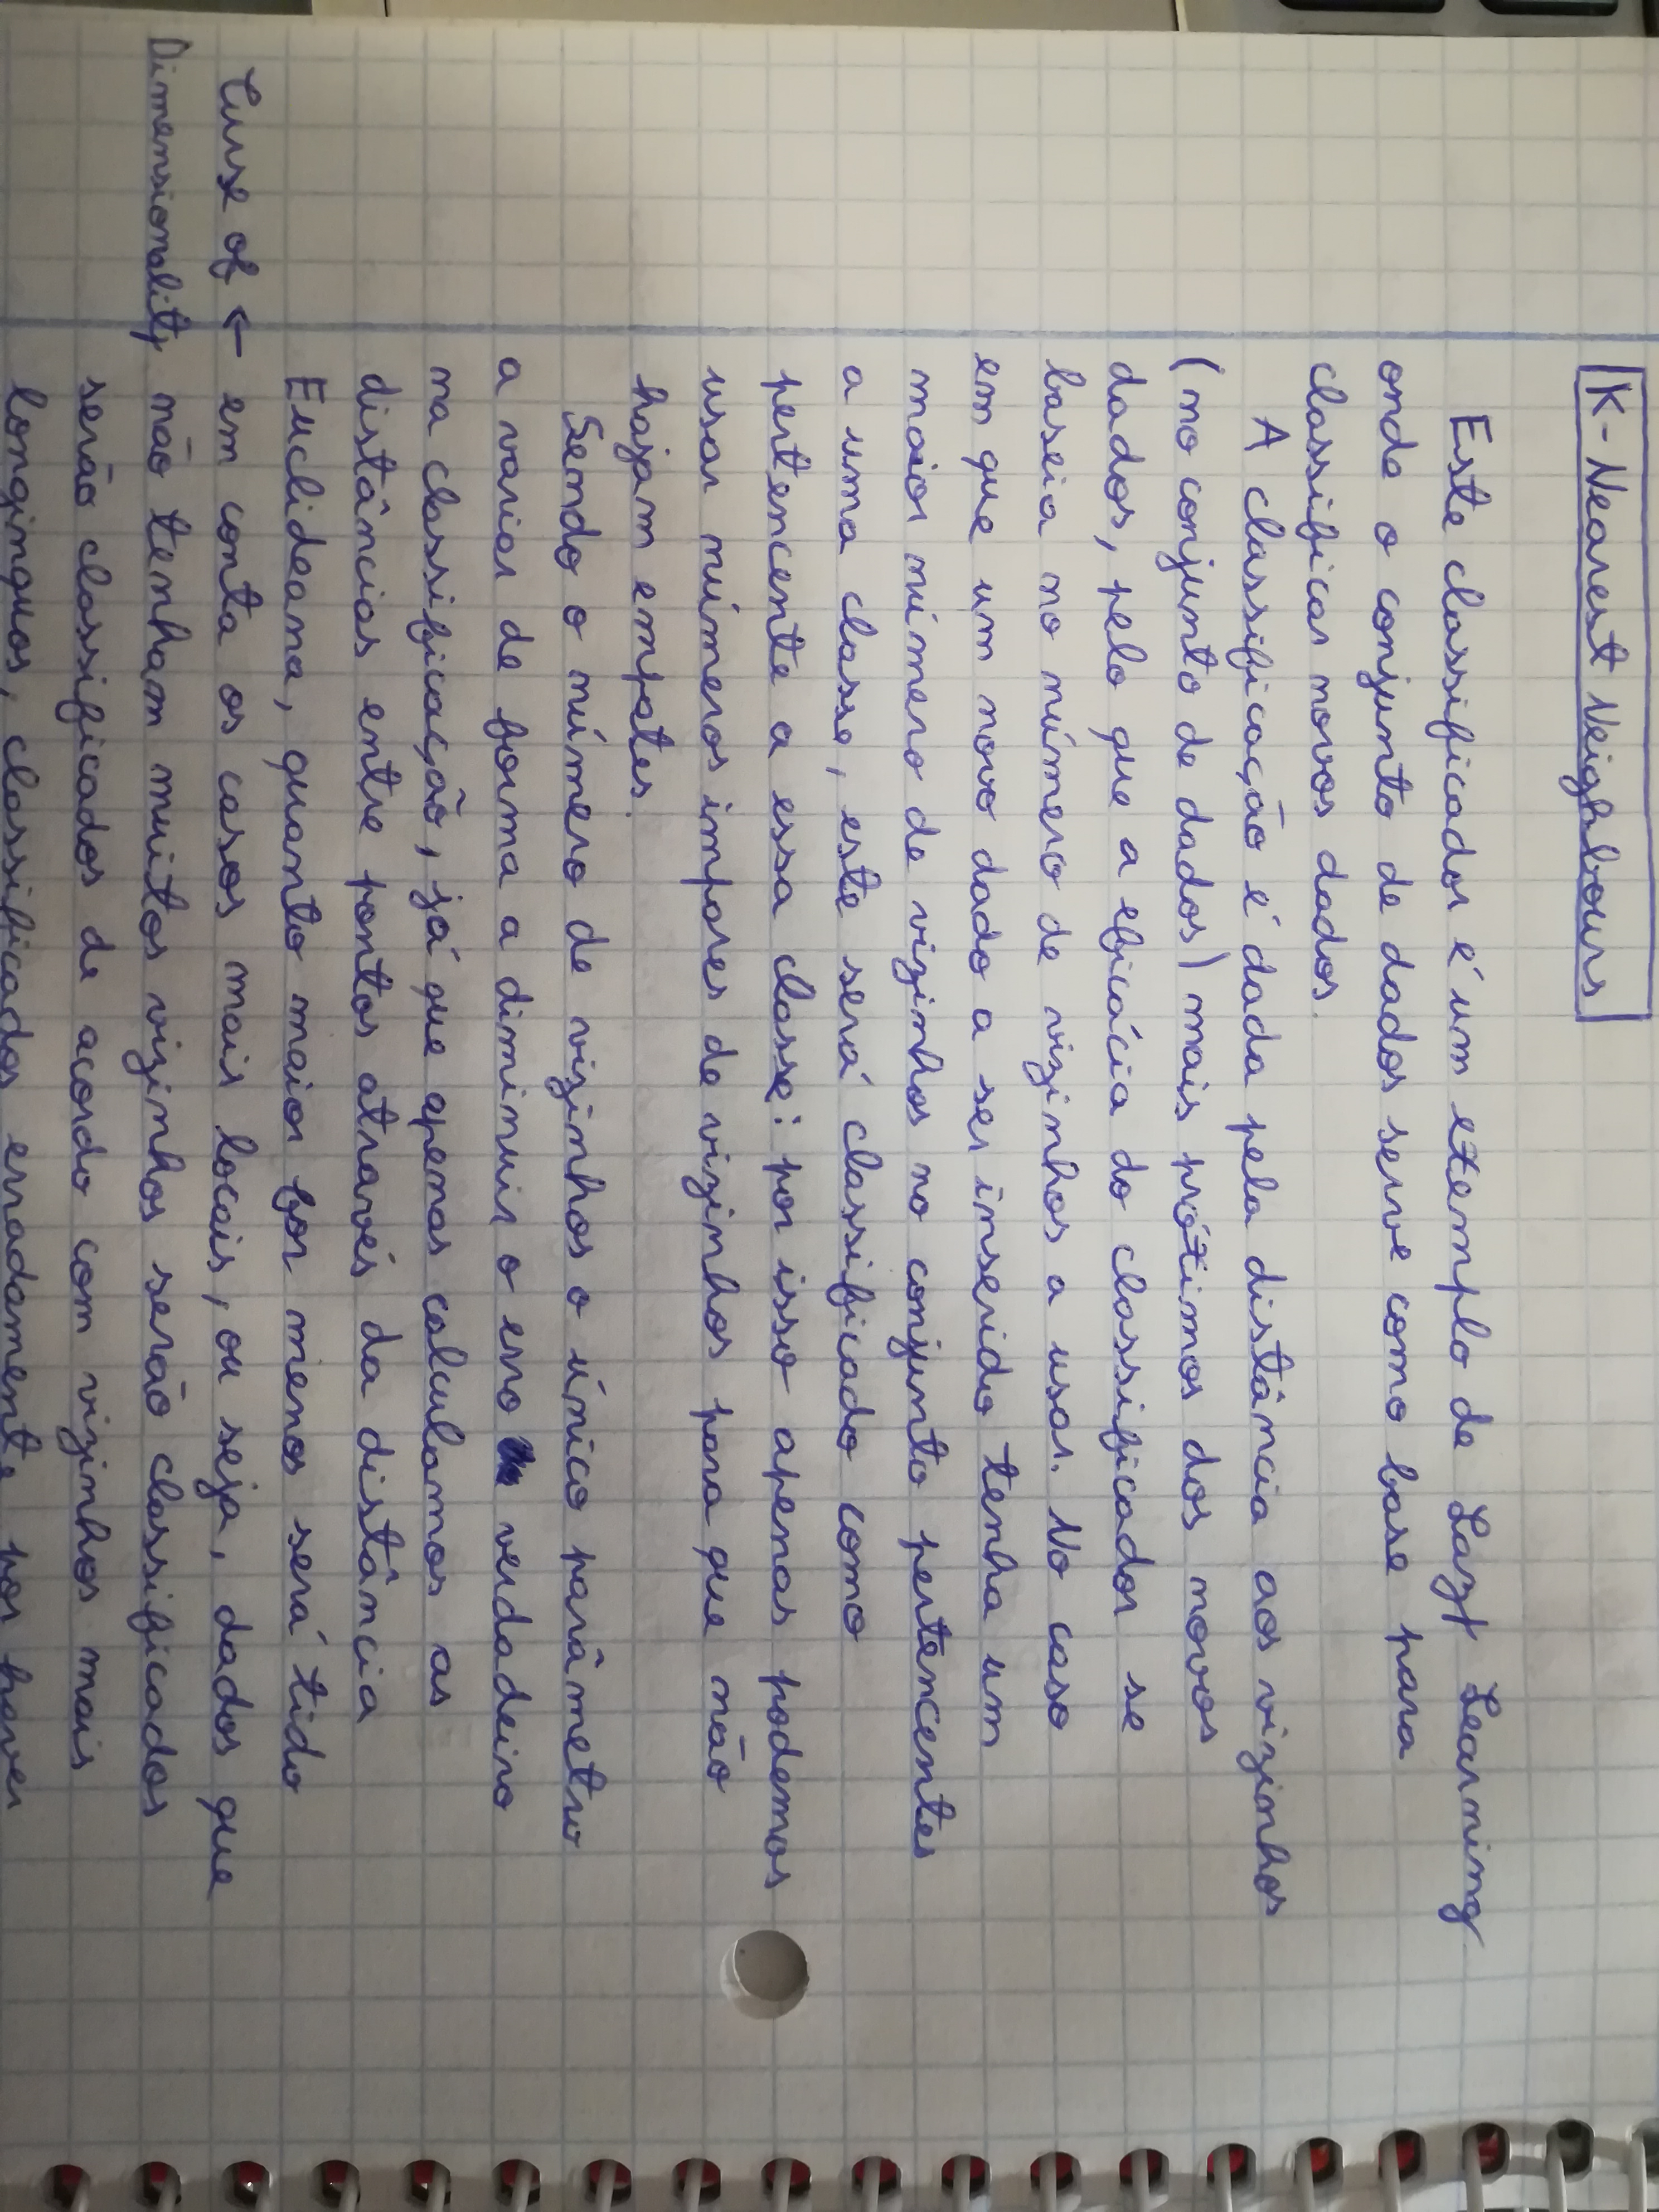 K-Nearest Neighbours
Este classificador é um exemplo de Lazy Learning
onde o conjunto de dados serve como base para
classificar novos dados.
A classificação é dada pela distância aos vizinhos
(no conjunto de dados) mais próximos dos novos
dados, pelo que a eficácia do classificador se
baseia no número de vizinhos a usar. No caso
em que um novo dado a ser inserido tenha um
maior número de vizinhos no conjunto pertencentes
a uma classe, este será classificado como
pertencente a essa classe: por isso apenas podemos
usar números impares de vizinhos para que não
hajam empates.
Sendo o número de vizinhos o único parâmetro
a variar de forma a diminuir o erro verdadeiro
na classificação, já que apenas calculamos as
distâncias entre pontos através da distância
Euclideana, quanto maior for menos será tido
Curse of ← em conta os casos mais locais, ou seja, dados que
Dimensionality não tenham muitos vizinhos serão classificados
serão classificados de acordo com vizinhos mais
longinquos, classificados erradamente por haver